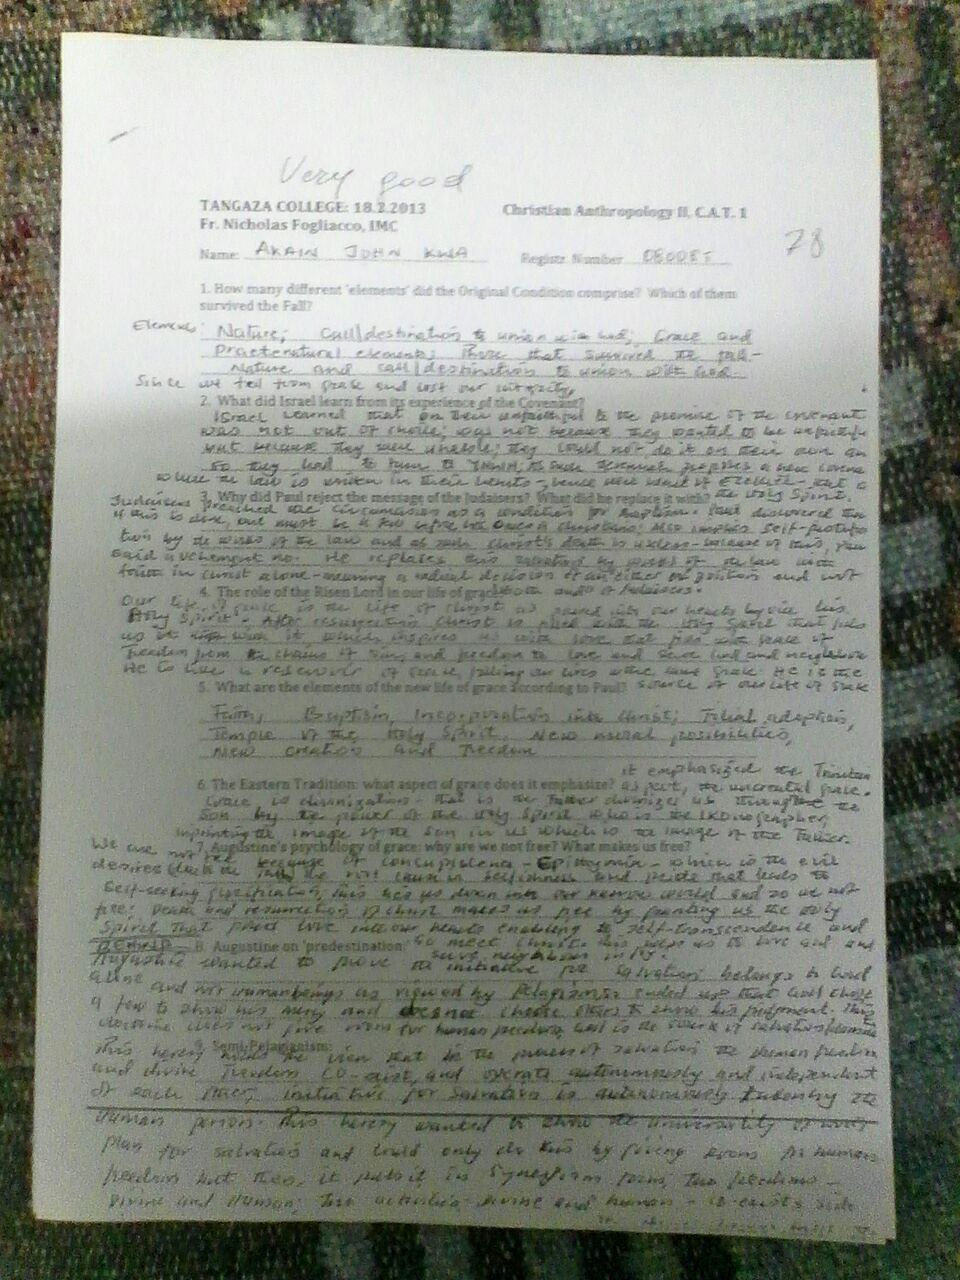 Very good
TANGAZA COLLEGE: 18.2.2013 Christian Anthropology II, C.A.T. 1
Fr. Nicholas Fogliacco, IMC
28
Name: AKAIN JOHN KWA Registr Number
1. How many different 'elements' did the Original Condition comprise? Which of them
survived the Fall?
Elements: Nature; Call/destination to union with God; Grace and
Praeternatural elements; Those that survived the fall-
Nature and call/destination to union with God
Since we fell from grace and lost our integrity,
2. What did Israel learn from its experience of the Covenant?
Israel learned that on their unfaithful to the promise of the covenant
was not out of choice; was not because they wanted to be unfaithful
but because they were unable; they could not do it on their own
so they had to turn to YHWH; Jeremiah a new
the law is written in their hearts - a
3. Why did Paul reject the message of the Judaisers? What did he replace it with? the Holy Spirit.
Judaisers preached the circumcision as a condition for Baptism. Paul discovered
if this is done, one must be a Jew before one a christian; Also implies self-
by the works of the law and as such Christ's death is useless - because of this,
said a vehement no. He replaces this by works of the law with
faith in Christ alone - meaning a radical decision of an either or position and not
4. The role of the Risen Lord in our life of grace: both and of Judaisers.
Our life of grace is the life of Christ as poured into our hearts by his
Holy Spirit. After resurrection Christ is filled with the Holy Spirit that
us with it which inspires us with love that
freedom from the chains of sin, and freedom to love and serve God and neighbour
He is like a reservoir of grace, filling our lives with grace He is the
5. What are the elements of the new life of grace according to Paul? source of our life of grace
Faith, Baptism, Incorporation into Christ; Filial adoption,
Temple of the Holy Spirit, New moral possibilities,
New creation and Freedom
it emphasized the Trinitarian
6. The Eastern Tradition: what aspect of grace does it emphasize? aspect, the uncreated grace.
Grace is divinization - that is the Father divinizes us through the
Son by the power of the Holy Spirit who is the Ikonographer,
imprinting the image of the Son in us which is the image of the Father.
7. Augustine's psychology of grace: why are we not free? What makes us free?
We are not free because of concupiscence - - which is the evil
desires the selfishness and pride that leads to
self-seeking gratification, this ties us down into our narrow world and so we not
free; Death and resurrection of Christ makes us free by granting us the Holy
Spirit that pours love into our hearts enabling to self-transcendence and
8. Augustine on 'predestination: so meet Christ. this helps us to love God and
serve neighbour
Augustine wanted to prove the initiative for salvation belongs to God
alone and not human beings as viewed by Pelagianists ended up that God chose
a few to show his mercy and does not choose others to show his judgment. This
doctrine does not give room for human freedom, God is the source of salvation
9. Semi-Pelagianism:
This heresy holds the view that in the process of salvation the human freedom
and divine freedom co-exist, and operate autonomously and independent
of each other; initiative for salvation is autonomously taken by the
human person. This heresy wanted to show the universality of God's
plan for salvation and could only do this by giving room for human
freedom but then, it puts it in Synergism form, two freedoms -
Divine and Human; two activities - divine and human - co-exists side